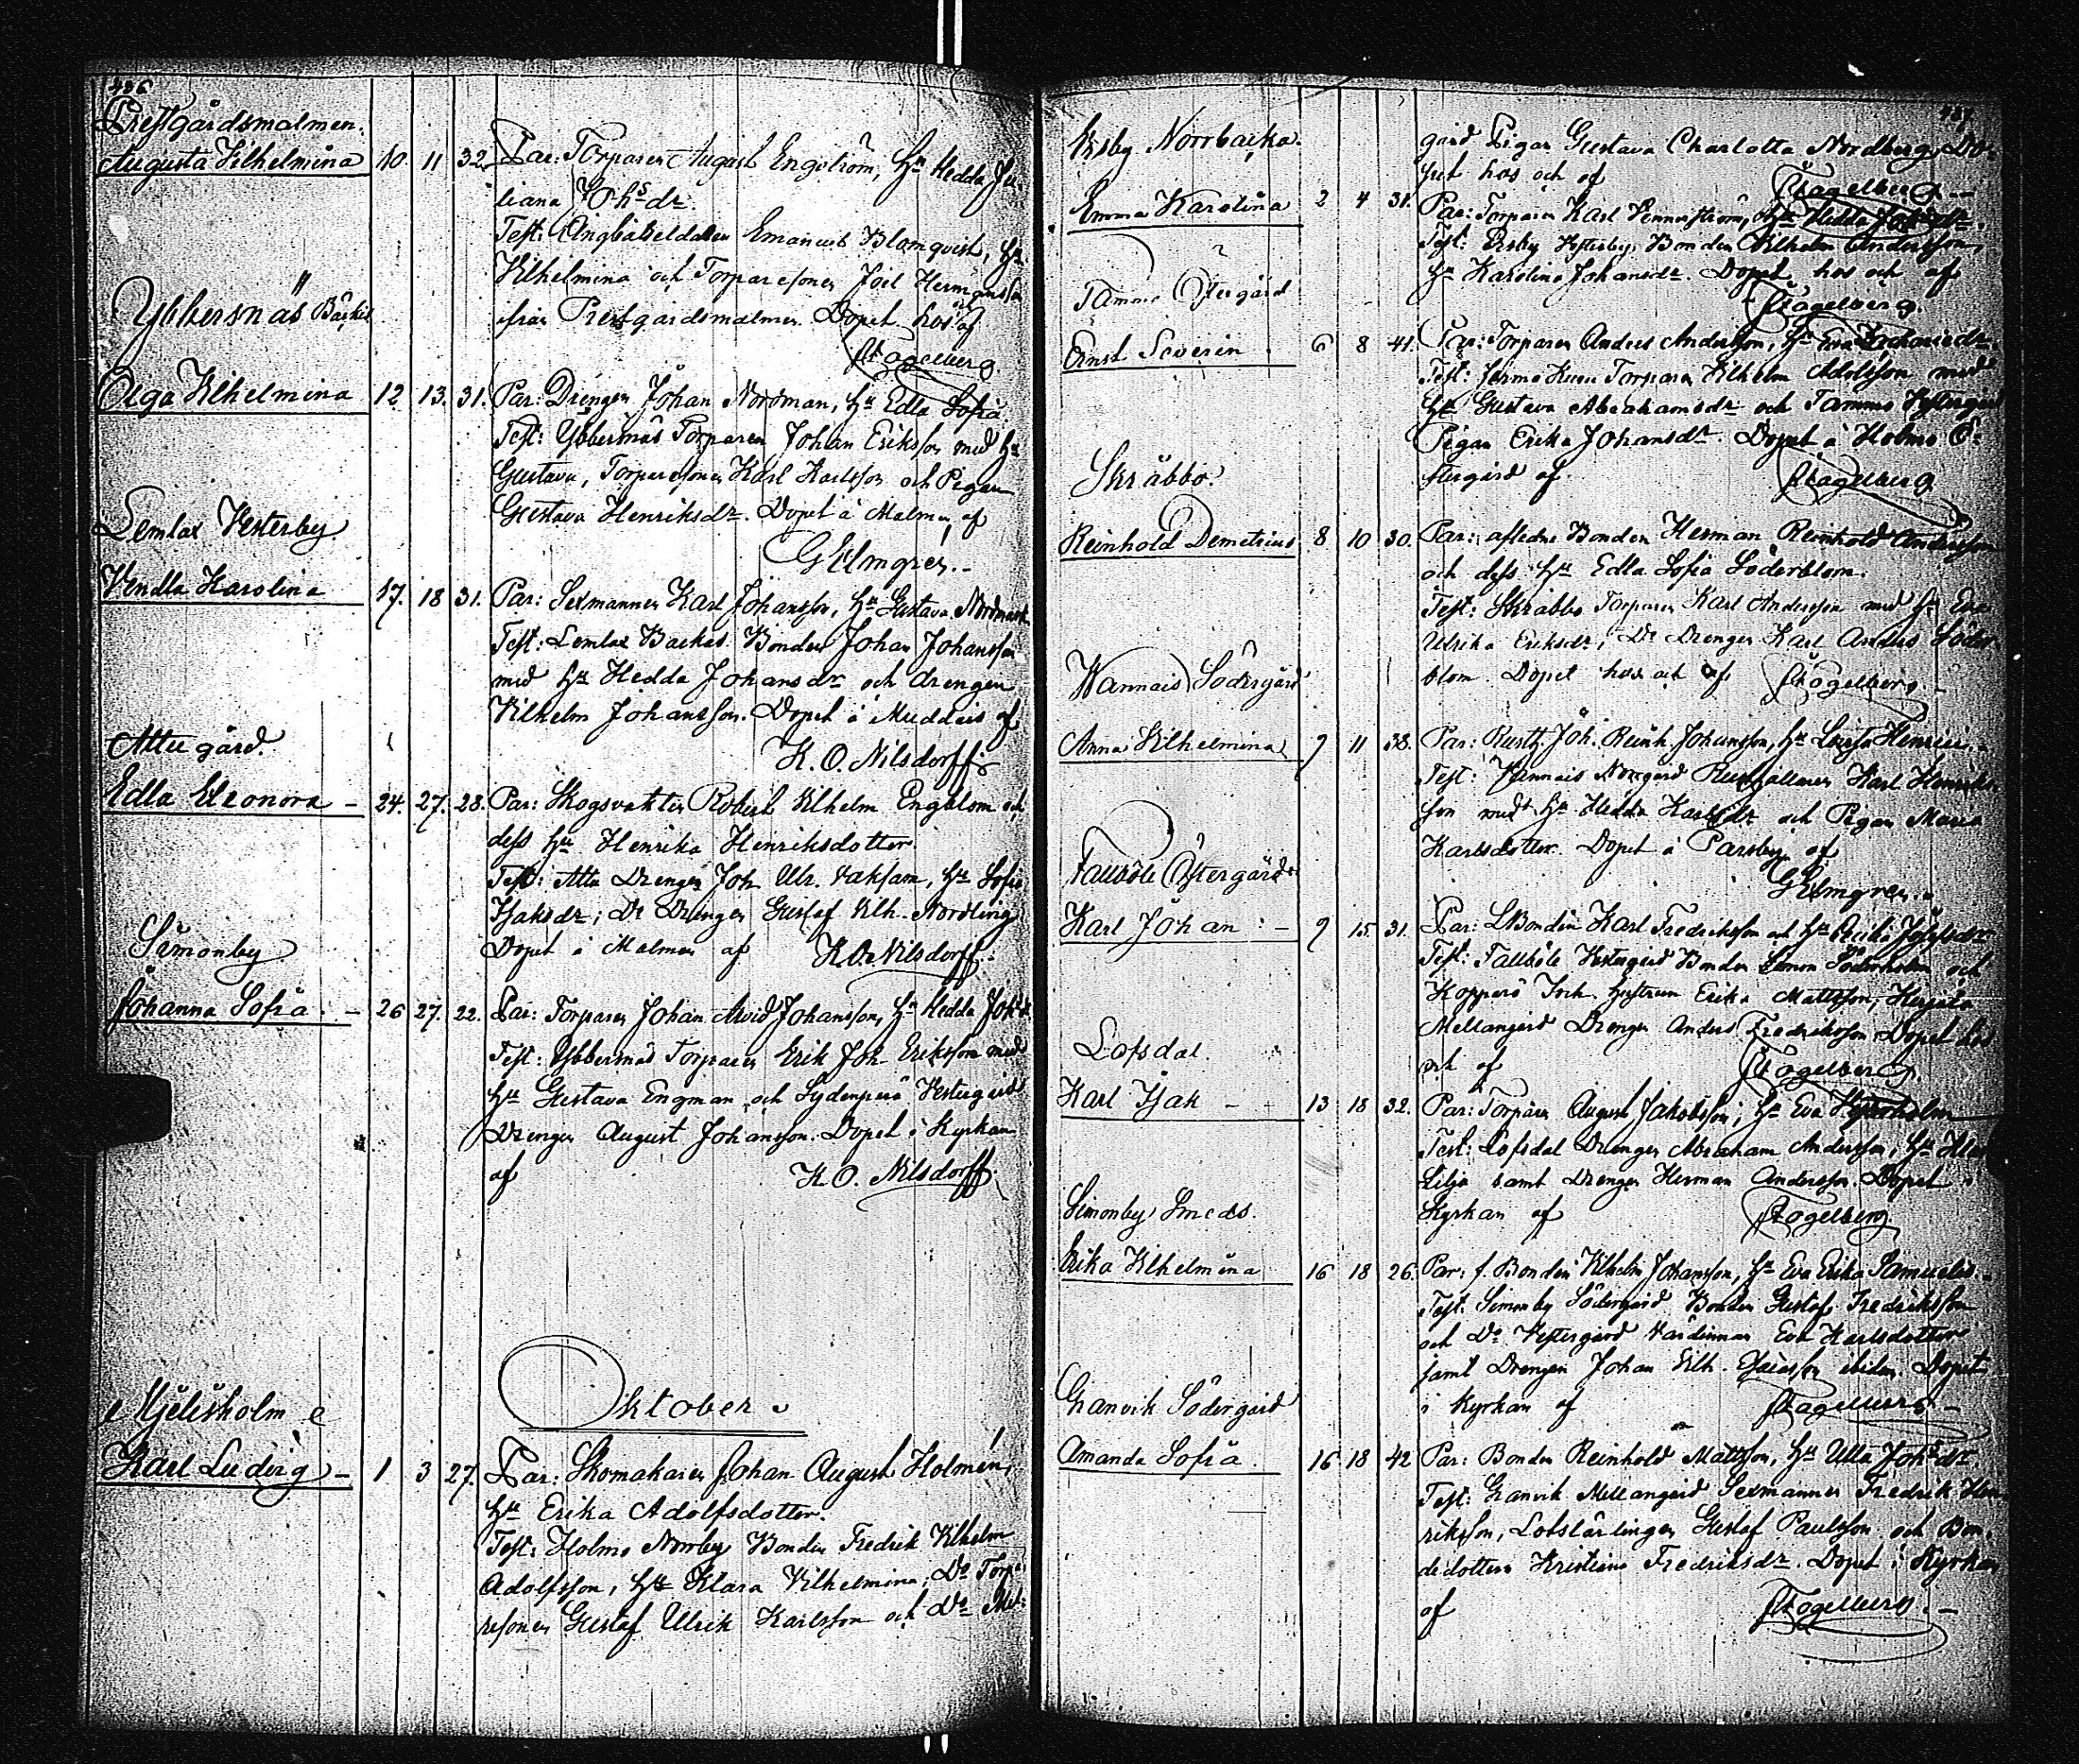 486
Prestgårdsmalmen.
Augusta Vilhelmina 10. 11 32. Par: Torparen August Engström, Hu Hedda Ju-
liana Johsdr.
Test: Ångbåtseldaren Emanuel Blomqvist, Hu
Vilhelmina och Torparesonen Joel Hermansson
ifrån Prestgårdsmalmen. Döpet hos af
Fågelberg.
Ybbersnäs Backas
Olga Vilhelmina 12. 13. 31. Par: Drengen Johan Nordman, Hu Edla Sofia
Test: Ybbersnäs Torparen Johan Eriksson med Hu
Gustava, Torparesonen Karl Karlsson och Pigan
Gustava Henriksdr. Döpet å Malmen af
G Elmgren.-
Lemlax Vesterby
Vendla Karolina 17. 18 31. Par: Sexmannen Karl Johansson, Hu Gustava Nordmark
Test: Lemlax Backas Bonden Johan Johansson
med Hu Hedda Johansdr och drengen
Vilhelm Johansson. Döpet å Muddais af
K. O. Nilsdorff
Attu gård.
Edla Eleonora - 24. 27. 28. Par: Skogsvakten Robert Vilhelm Engblom och
dess Hu Henrika Henriksdotter.
Test: Attu Drengen Joh. Ulr. Vaksam, Hu Sofia
Isaksdr; Do Drengen Gustaf Vilh. Nordling
Döpet å Malmen af K.O. Nilsdorff.
Simonby
Johanna Sofia. - 26 27. 22. Par: Torparen Johan Arvid Johansson, Hu Hedda Johsdr
Test: Ybbersnäs Torparen Erik Joh. Eriksson med
Hu Gustava Engman och Sydenperä Vestergård
Drengen August Johansson. Döpet i Kyrkan
af K. O. Nilsdorff.
Oktober.
Mjelisholm
Karl Ludvig - 1 3 27. Par: Skomakaren Johan August Holmén,
Hu Erika Adolfsdotter.
Test: Holmo Norrby Bonden Fredrik Vilhelm
Adolfsson, Hu Klara Vilhelmina; Do Torpa-
resonen Gustaf Ulrik Karlsson och Do
487.
gård Pigan Gustava Charlotta Nordberg. Dö-
pet hos och af Fågelberg.-
Ersby Norrbacka.
Emma Karolina 2 4 31. Par: Torparen Karl Vennerström, Hu Hedda
Test: Ersby Vesterby Bonden Vilhelm Andersson,
Hu Karolina Johansdr. Döpet hos och af
Fågelberg.
Tammo Östergård
Ernst Severin. 6 8 41. Par: Torparen Anders Andersson, Hu Eva Zachariedr
Test: Jermo Torparen Vilhelm Adolfsson med
Hu Gustava Abrahamsdr och Tammo Vestergård
Pigan Erika Johansdr. Döpet å Holmo Ö-
stergård af Fågelberg
Skräbbo.
Reinhold Demetrius 8 10 30. Par: afledne Bonden Herman Reinhold Andersson
och dess Hu Edla Sofia Söderblom.
Test: Skräbbo Torparen Karl Andersson med Hu Eva
Ulrika Eriksdr; Do Drengen Karl Anders Söder-
blom. Döpet hos och af Fågelberg.-
Vannais Södergård
Anna Vilhelmina 9 11 38. Par: Rusth. Joh. Reinh. Johansson, Hu Lovisa Henrici.
Test: Vannais Norrgård Rusthållaren Karl Henriks-
son med Hu Hedda Karlsdr och Pigan Maria
Karlsdotter. Döpet i Parsby af
G Elmgren.
Tallböle Östergård
Karl Johan:- 9 15 31. Par: LBonden Karl Fredriksson och Hu Erika
Test: Tallböle Vestergård Bonden Simon Söderholm och
Kopparö Inh. hustrun Erika Mattsson, Hergåla
Mellangård Drengen Anders Fredriksson. Döpet hos
och af Fågelberg.
Lofsdal.
Karl Isak - - 13 18 32. Par: Torparen August Jakobsson; Hu Eva Vesterholm
Test: Lofsdal Drengen Abraham Andersson; Hu
Lilja samt Drengen Herman Andersson. Döpet i
Kyrkan af Fågelberg.
Simonby Smeds.
Erika Vilhelmina 16 18 26. Par: f. Bonden Vilhelm Johansson, Hu Eva Erika Samuelsd.
Test: Simonby Södergård Bonden Gustaf Fredriksson
och Do Vestergård Värdinnan Eva Karlsdotter
samt Drengen Johan Vilh. Isaksson ibidem. Döpet
i Kyrkan af Fågelberg.-
Granvik Södergård
Amanda Sofia. 16 18 42 Par: Bonden Reinhold Mattsson, Hu Ulla Johsdr.
Test: Granvik Mellangård Sexmannen Fredrik Hen-
riksson, Lotslärlingen Gustaf Paulsson och Bon-
dedottern Kristina Fredriksdr. Döpet i Kyrkan
af Fågelberg.-